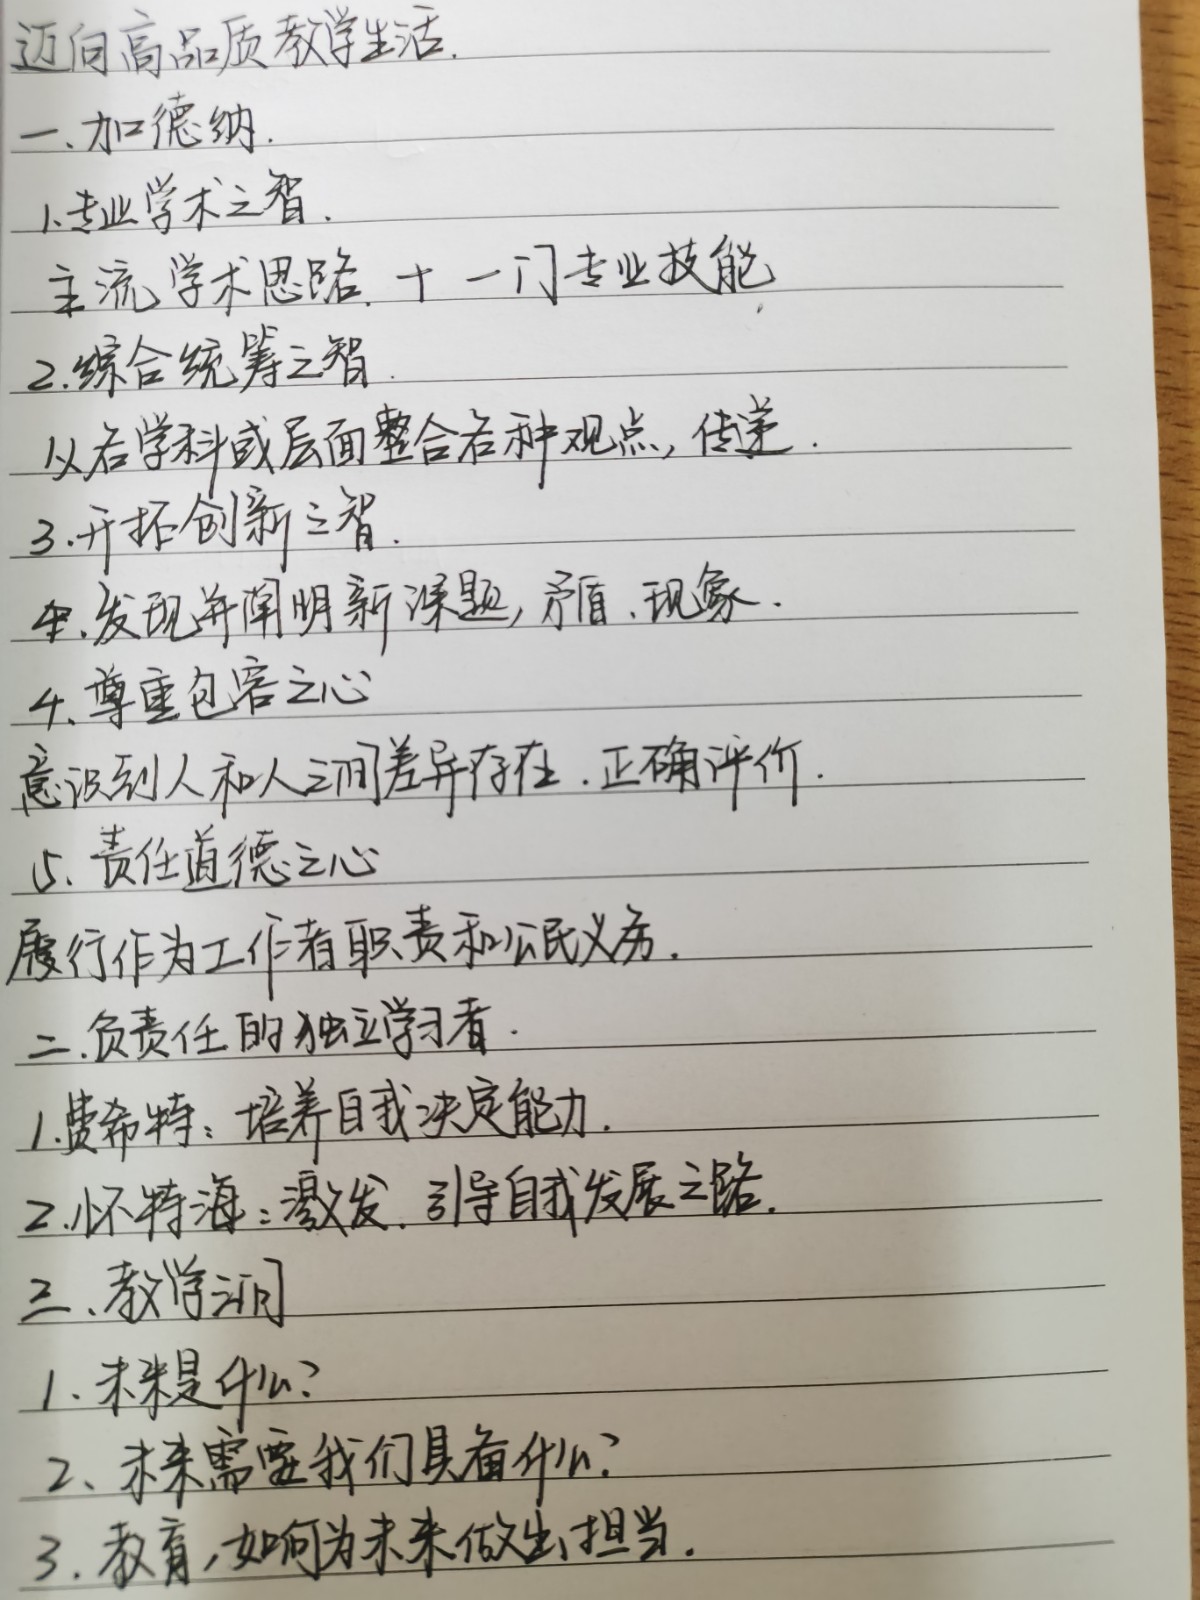 迈向高品质教学生活.
一、加德纳.
1、专业学术之智.
主流学术思路. 十 一门专业技能
2.综合统筹之智.
从各学科或层面整合各种观点,传递.
3.开拓创新之智.
发现并阐明新课题,矛盾、现象.
4、尊重包容之心
意识到人和人之间差异存在.正确评价.
5、责任道德之心
履行作为工作者职责和公民义务.
二、负责任的独立学习者.
1.费希特:培养自我决定能力.
2.怀特海:激发.引导自我发展之路.
三、教学之问
1、未来是什么?
2、未来需要我们具备什么?
3.教育,如何为未来做出担当.